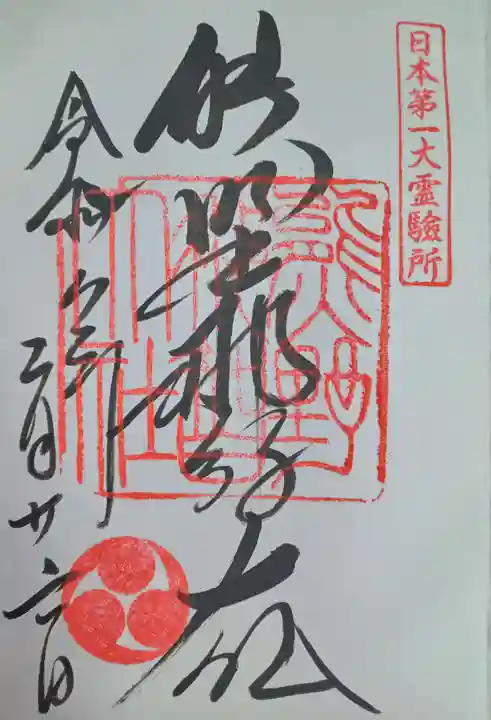 日本第一大霊験所
熊野那智大社
令和年
二月廿六日
熊野